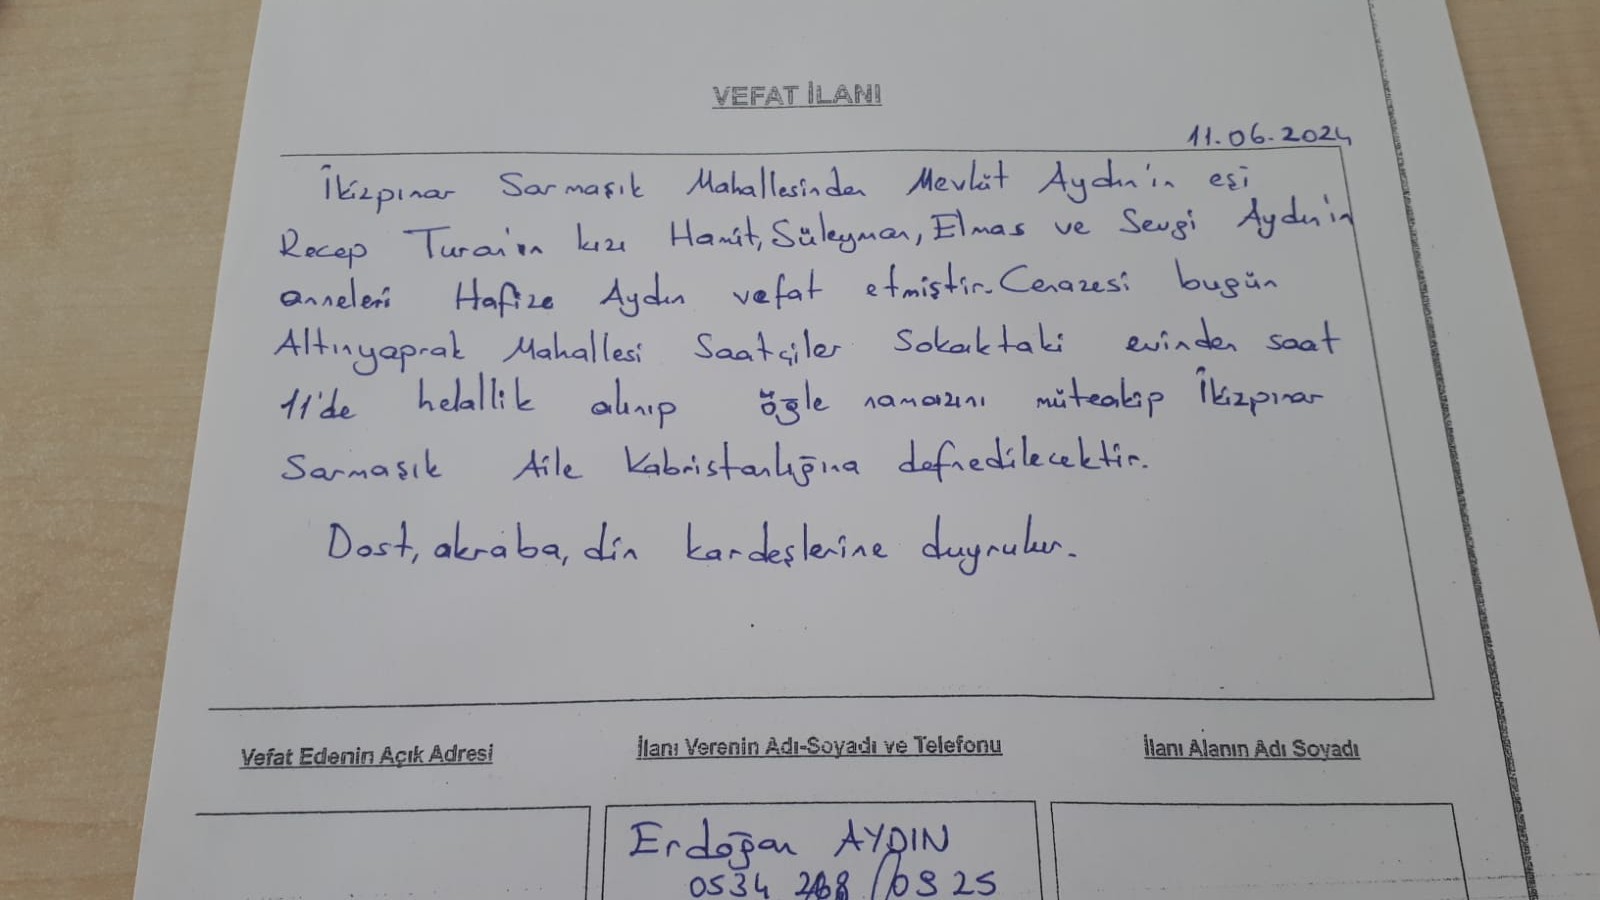 VEFAT İLANI
11.06.2024
İkizpınar Sarmaşık Mahallesinden Mevlüt Aydın'ın eşi
Recep Turan'ın kızı Hamit, Süleyman, Elmas ve Sevgi Aydın'ın
anneleri Hafize Aydın vefat etmiştir. Cenazesi bugün
Altınyaprak Mahallesi Saatçiler Sokaktaki evinden saat
11'de helallik alınıp öğle namazını müteakip İkizpınar
Sarmaşık Aile Kabristanlığına defnedilecektir.
Dost, akraba, din kardeşlerine duyrulur.
Vefat Edenin Açık Adresi
İlanı Verenin Adı-Soyadı ve Telefonu
İlanı Alanın Adı Soyadı
Erdoğan AYDIN
0534